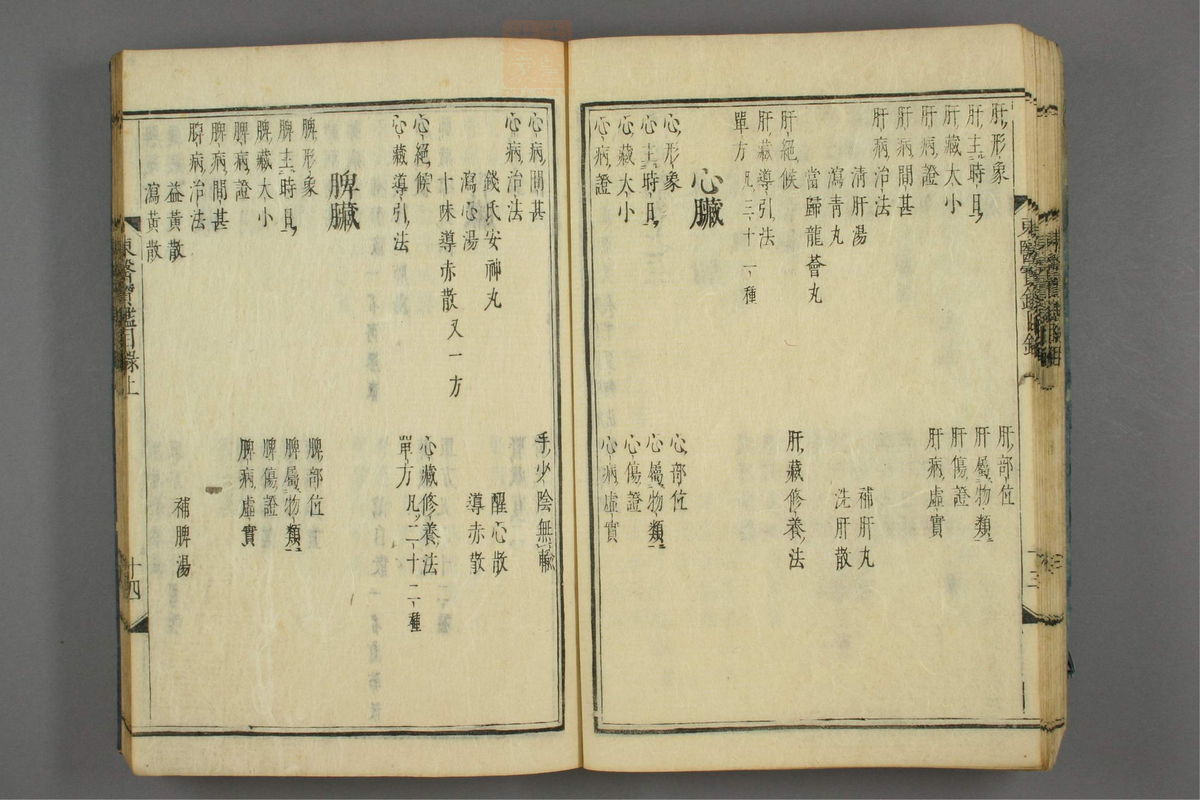 肝形象
肝部位
肝主時日
肝屬物類
肝藏大小
肝傷證
肝病證
肝病虛實
肝病間甚
肝病治法
清肝湯
補肝丸
瀉青丸
洗肝散
當歸龍薈丸
肝絕候
肝藏修養法
肝藏導引法
單方凡三十一種
心臟
心形象
心部位
心主時日
心屬物類
心藏大小
心傷證
心病證
心病虛實
心病間甚
手少陰無輸
心病治法
錢氏安神丸
醒心散
瀉心湯
導赤散
十味導赤散又一方
心絕候
心藏修養法
心藏導引法
單方凡二十二種
脾臟
脾形象
脾部位
脾主時日
脾屬物類
脾藏大小
脾傷證
脾病證
脾病虛實
脾病間甚
脾病治法
益黃散
補脾湯
瀉黃散
東醫寶鑑目錄上
十四